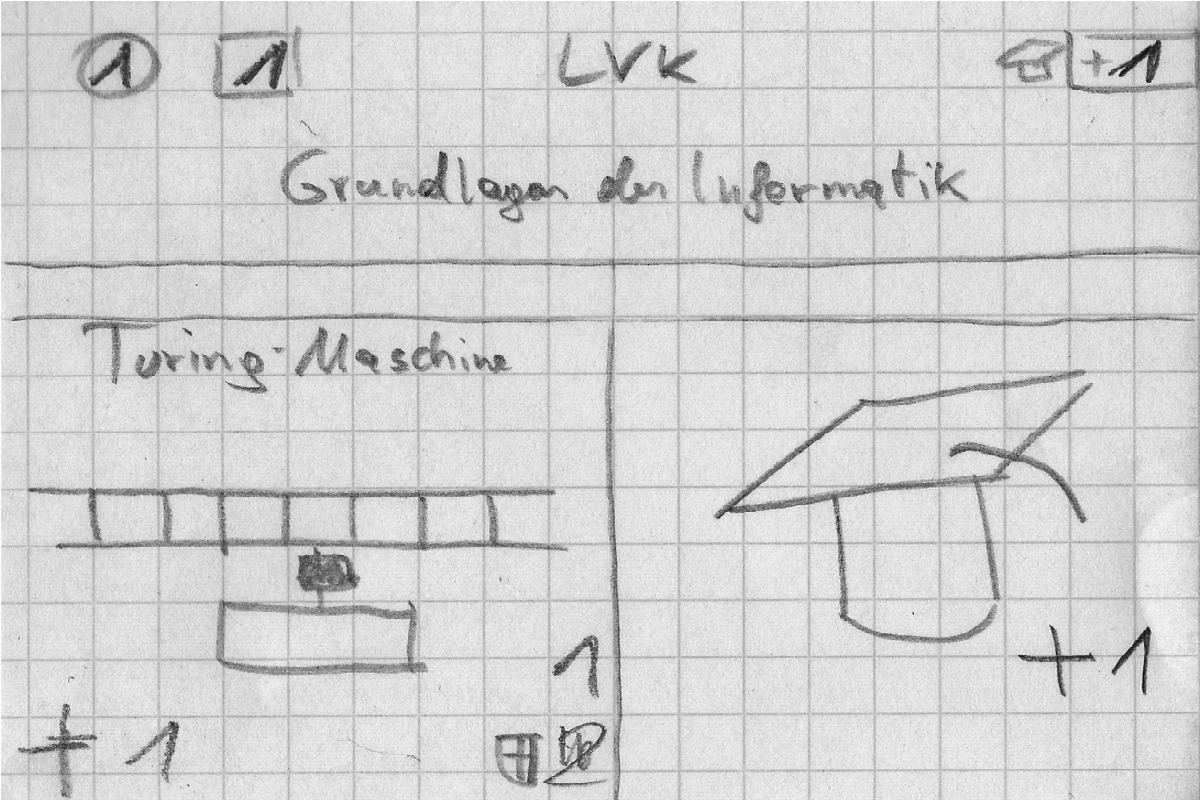 1 1 LVK +1
Grundlagen der Informatik
Turing-Maschine
1
+1
+1